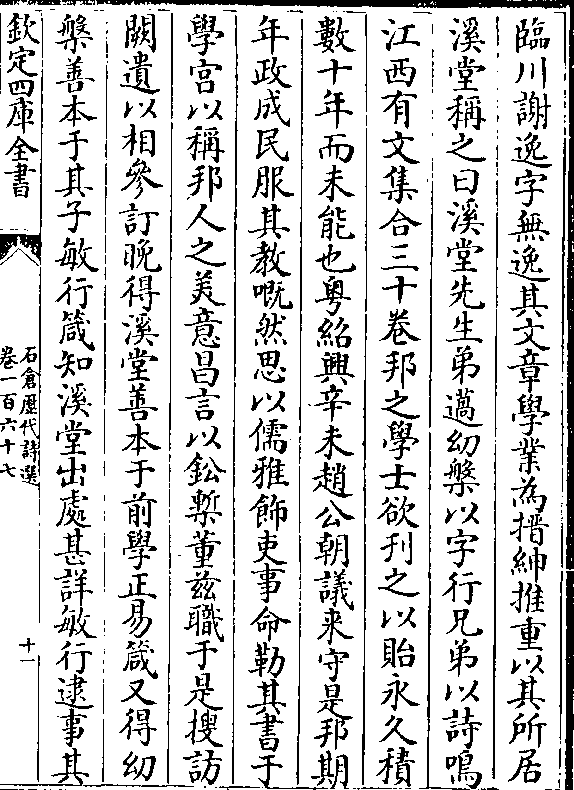 臨川謝逸字無逸其文章學業為搢紳推重以其所居
溪堂稱之曰溪堂先生弟薖幼槃以字行兄弟以詩鳴
江西有文集合三十卷邦之學士欲刋之以貽永久積
數十年而未能也粤紹興辛未趙公朝議来守是邦期
年政成民服其教嘅然思以儒雅飾吏事命勒其書于
學宫以稱邦人之美意昌言以鈆槧董兹職于是搜訪
闕遺以相參訂晚得溪堂善本于前學正易箴又得幼
槃善本于其子敏行箴知溪堂出處甚詳敏行逮事其
欽定四庫全書
石倉歴代詩選
卷一百六十七
十一